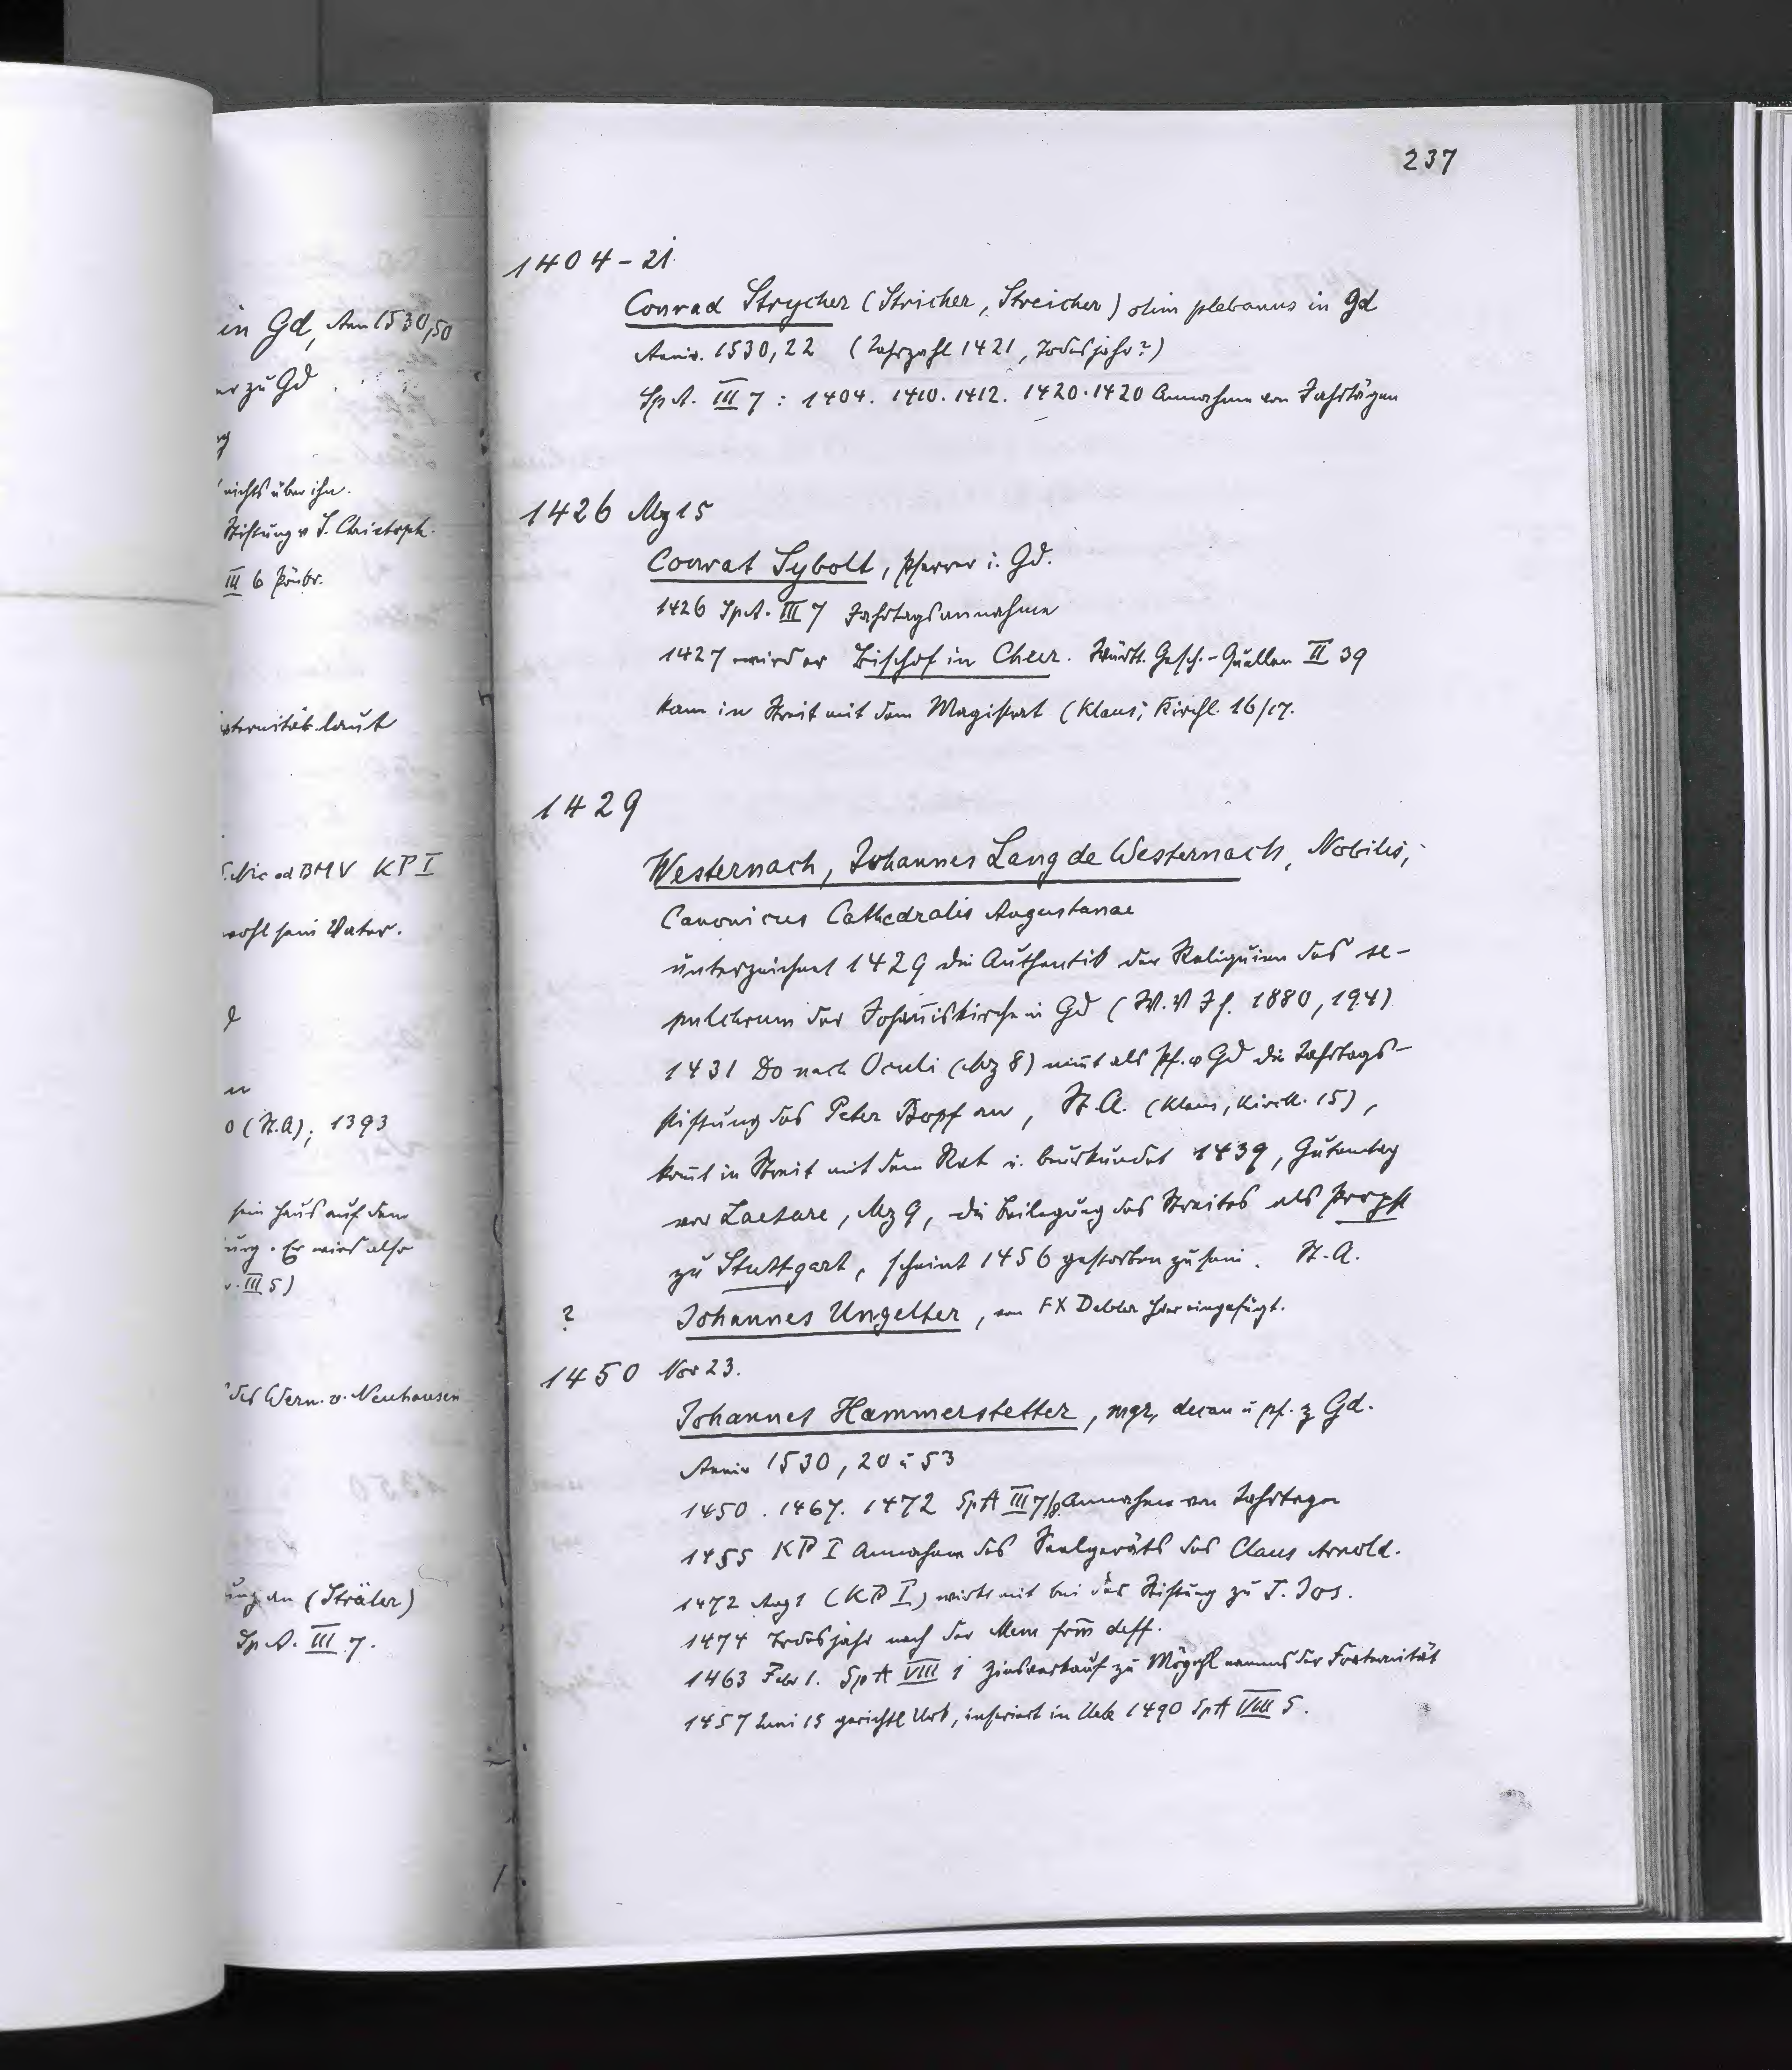 in Gd, Ann 1530,50
er zu Gd.
nichts über ihn.
Stiftung v S. Christoph.
III 6 Präbr.
aternität laut
S. Nic ad BMV KP I
wohl sein Vater.
o (St.A); 1393
sein Haus auf dem
urg. Er wird also
v. III 5)
des Wern. v. Neuhausen
ung an (Sträler)
Sp.A. III 7.
237
1404-21
Conrad Strycher (Stricher, Streicher) olim plebanus in Gd
Anniv. 1530,22 (Jahrzahl 1421, Todesjahr?)
Sp.A. III 7: 1404. 1410. 1412. 1420. 1420 Annahme von Jahrtägen
1426 Mz 15
Conrat Sybolt, Pfarrer i. Gd.
1426 Sp.A. III 7 Jahrtagsannahme
1427 wird er Bischof in Chur. Württ. Gesch.-Quellen II 39
kam in Streit mit dem Magistrat (Klaus, Kirchl. 16/17.
1429
Westernach, Johannes Lang de Westernach, Nobilis,
Canonicus Cathedralis Augustanae
unterzeichnet 1429 die Authentik der Reliquien des se-
pulchrum der Johañiskirche in Gd (W.V Jh. 1880, 194)
1431 Do nach Oculi (Mz 8) nim̄t als Pf. v Gd die Jahrtags-
stiftung des Peter Bopf an, St.A. (Klaus, Kirchl. 15),
kom̄t in Streit mit dem Rat u. beurkundet 1439, Gutentag
vor Laetare, Mz 9, die Beilegung des Streites als Propst
zu Stuttgart, scheint 1456 gestorben zu sein. St.A.
? Johannes Ungelter, von FX Debler hier eingefügt.
1450 Nov 23.
Johannes Hammerstetter, mgr, decan u pf. z Gd.
Anniv 1530, 20 u 53
1450. 1467. 1472 SpA III 7/8 Annahme von Jahrtagen
1455 KP I Annahme des Seelgeräts des Claus Arnold.
1472 Aug 1 (KP I) wirkt mit bei der Stiftung zu S. Jos.
1474 Todesjahr nach der Mem frm̄ deff.
1463 Febr 1. SpA VIII 1 Zinsverkauf zu Mögghl namens der Fraternität
1457 Juni 15 gerichtl Urk, inseriert in Urk 1490 SpA VIII 5.